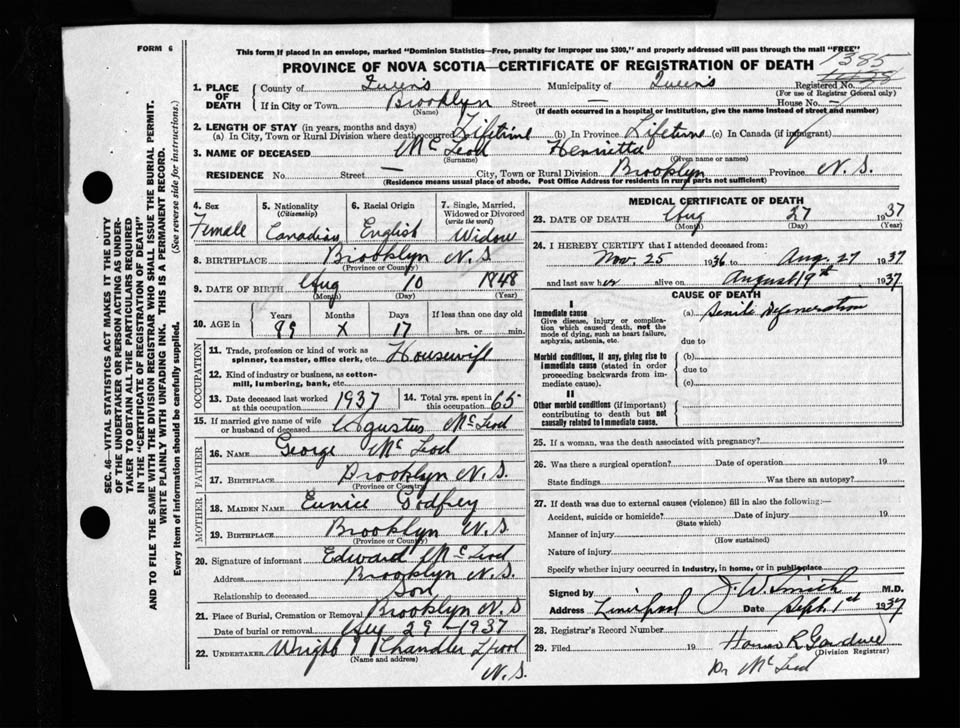 FORM 6
This form if placed in an envelope, marked "Dominion Statistics—Free, penalty for improper use $300," and properly addressed will pass through the mail "FREE"
PROVINCE OF NOVA SCOTIA—CERTIFICATE OF REGISTRATION OF DEATH
1385
1. PLACE OF DEATH
County of Queens Municipality of Queens Registered No.
(For use of Registrar General only)
If in City or Town Brooklyn Street — House No. —
(Name) (If death occurred in a hospital or institution, give the name instead of street and number)
2. LENGTH OF STAY (in years, months and days)
(a) In City, Town or Rural Division where death occurred Lifetime (b) In Province Lifetime (c) In Canada (if immigrant)
3. NAME OF DECEASED McLeod Henrietta
(Surname) (Given name or names)
RESIDENCE No. Street — City, Town or Rural Division Brooklyn Province N.S.
(Residence means usual place of abode. Post Office Address for residents in rural parts not sufficient)
4. Sex Female
5. Nationality (Citizenship) Canadian
6. Racial Origin English
7. Single, Married, Widowed or Divorced (write the word) Widow
8. BIRTHPLACE Brooklyn N.S.
(Province or County)
9. DATE OF BIRTH Aug 10 1848
(Month) (Day) (Year)
10. AGE in Years Months Days If less than one day old
X 17 hrs. or min.
OCCUPATION
11. Trade, profession or kind of work as spinner, teamster, office clerk, etc. Housewife
12. Kind of industry or business, as cotton-mill, lumbering, bank, etc.
13. Date deceased last worked at this occupation 1937
14. Total yrs. spent in this occupation 65
15. If married give name of wife or husband of deceased Agustus McLeod
FATHER
16. NAME George McLeod
17. BIRTHPLACE Brooklyn N.S.
(Province or County)
MOTHER
18. MAIDEN NAME Eunice Godfrey
19. BIRTHPLACE Brooklyn N.S.
(Province or County)
20. Signature of informant Edward McLeod
Address Brooklyn N.S.
Relationship to deceased Son
21. Place of Burial, Cremation or Removal Brooklyn N.S
Date of burial or removal Aug 29 - 1937
22. UNDERTAKER Wright Chandler Lpool
(Name and address)
N.S.
MEDICAL CERTIFICATE OF DEATH
23. DATE OF DEATH Aug 27 1937
(Month) (Day) (Year)
24. I HEREBY CERTIFY that I attended deceased from:
Nov. 25 1936 to Aug. 27 1937
and last saw her alive on August 19th 1937
CAUSE OF DEATH
I
Immediate cause
Give disease, injury or complication which caused death, not the mode of dying, such as heart failure, asphyxia, asthenia, etc.
(a) Senile Degeneration
due to
Morbid conditions, if any, giving rise to immediate cause (stated in order proceeding backwards from immediate cause).
(b)
due to
(c)
II
Other morbid conditions (if important) contributing to death but not causally related to immediate cause.
25. If a woman, was the death associated with pregnancy?
26. Was there a surgical operation? Date of operation 19
State findings Was there an autopsy?
27. If death was due to external causes (violence) fill in also the following:—
Accident, suicide or homicide? Date of injury 19
(State which)
Manner of injury
(How sustained)
Nature of injury
Specify whether injury occurred in industry, in home, or in public place
Signed by J. W. Smith M.D.
Address Liverpool Date Sept. 1st 1937
28. Registrar's Record Number
29. Filed 19 R Gardner
(Division Registrar)
McLeod
SEC. 46—VITAL STATISTICS ACT MAKES IT THE DUTY
OF THE UNDERTAKER OR PERSON ACTING AS UNDER-
TAKER TO OBTAIN ALL THE PARTICULARS REQUIRED
IN THE "CERTIFICATE OF REGISTRATION OF DEATH"
AND TO FILE THE SAME WITH THE DIVISION REGISTRAR WHO SHALL ISSUE THE BURIAL PERMIT.
WRITE PLAINLY WITH UNFADING INK. THIS IS A PERMANENT RECORD.
Every item of information should be carefully supplied. (See reverse side for instructions.)